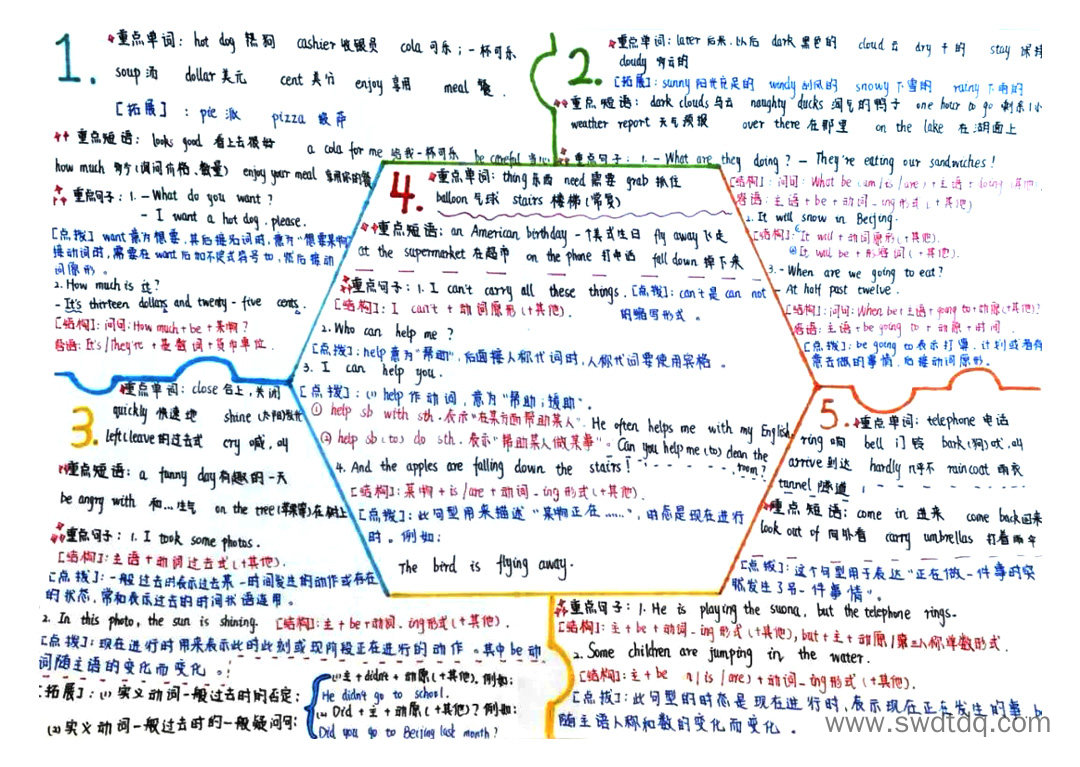 1.
重点单词: hot dog 热狗 cashier 收银员 cola 可乐;一杯可乐
soup 汤 dollar 美元 cent 美分 enjoy 享用 meal 餐.
[拓展]: pie 派 pizza 披萨
重点短语: looks good 看上去很好 a cola for me 给我一杯可乐 be careful
how much 多少(询问价格、数量) enjoy your meal 享用你的餐
重点句子: 1. - What do you want?
- I want a hot dog, please.
[点拨] want意为想要,其后接名词时,意为"想要某物
接动词时,需要在want后加不定式符号to,然后接动
词原形。
2. How much is it?
- It's thirteen dollars and twenty-five cents.
[结构]: 问句: How much + be + 某物?
答语: It's/They're + 基数词 + 货币单位.
2.
重点单词: later 后来,以后 dark 黑色的 cloud 云 dry 干的 stay 保持
cloudy 多云的
[拓展]: sunny 阳光充足的 windy 刮风的 snowy 下雪的 rainy 下雨的
重点短语: dark clouds 乌云 naughty ducks 淘气的鸭子 one hour to go 剩余1小
weather report 天气预报 over there 在那里 on the lake 在湖面上
重点句子: 1. - What are they doing? - They're eating our sandwiches!
[结构]: 问句: What be (am/is/are) + 主语 + doing (其他).
答语: 主语 + be + 动词-ing形式 (+其他)
2. It will snow in Beijing.
[结构]: It will + 动词原形 (+其他).
It will be + 形容词 (+其他).
3. - When are we going to eat?
- At half past twelve.
[结构]: 问句: When be + 主语 + going to + 动原 (+其他)?
答语: 主语 + be going to + 动原 + 时间.
[点拨]: be going to 表示打算、计划或者有
意去做的事情,后接动词原形。
4.
重点单词: thing 东西 need 需要 grab 抓住
balloon 气球 stairs 楼梯(常复)
重点短语: an American birthday 一个美式生日 fly away 飞走
at the supermarket 在超市 on the phone 打电话 fall down 掉下来
重点句子: 1. I can't carry all these things. [点拨]: can't 是 can not
的缩写形式。
[结构]: I can't + 动词原形 (+其他).
2. Who can help me?
[点拨]: help意为"帮助",后面接人称代词时,人称代词要使用宾格。
3. I can help you.
[点拨]: (1) help 作动词,意为"帮助;援助"。
① help sb with sth. 表示"在某方面帮助某人". He often helps me with my English.
② help sb (to) do sth. 表示"帮助某人做某事"。 Can you help me (to) clean the
room?
4. And the apples are falling down the stairs!
[结构]: 某物 + is/are + 动词-ing形式 (+其他).
[点拨]: 此句型用来描述"某物正在……",时态是现在进行
时。例如:
The bird is flying away.
3.
重点单词: close 合上,关闭
quickly 快速地 shine (太阳)发光
left leave的过去式 cry 喊,叫
重点短语: a funny day 有趣的一天
be angry with 和…生气 on the tree (苹果等)在树上
重点句子: 1. I took some photos.
[结构]: 主语 + 动词过去式 (+其他).
[点拨]: 一般过去时表示过去某一时间发生的动作或存在
的状态,常和表示过去的时间状语连用。
2. In this photo, the sun is shining. [结构]: 主 + be + 动词-ing形式 (+其他).
[点拨]: 现在进行时用来表示此时此刻或现阶段正在进行的动作。其中be动
词随主语的变化而变化。
[拓展]: (1) 实义动词一般过去时的否定:
主 + didn't + 动原 (+其他). 例如:
He didn't go to school.
(2) 实义动词一般过去时的一般疑问句:
Did + 主 + 动原 (+其他)? 例如:
Did you go to Beijing last month?
5.
重点单词: telephone 电话
ring 响 bell 门铃 bark (狗)吠,叫
arrive 到达 hardly 几乎不 raincoat 雨衣
tunnel 隧道
重点短语: come in 进来 come back 回来
look out of 向外看 carry umbrellas 打着雨伞
[点拨]: 这个句型用于表达"正在做一件事时突
然发生了另一件事情"。
重点句子: 1. He is playing the suona, but the telephone rings.
[结构]: 主 + be + 动词-ing形式 (+其他), but + 主 + 动原/第三人称单数形式.
2. Some children are jumping in the water.
[结构]: 主 + be (is/are) + 动词-ing形式 (+其他).
[点拨]: 此句型的时态是现在进行时,表示现在正在发生的事 b
随主语人称和数的变化而变化。
www.swdtdq.com